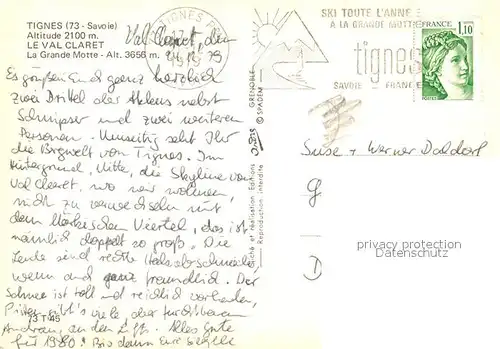 TIGNES (73 - Savoie)
Altitude 2100 m.
LE VAL CLARET
La Grande Motte - Alt. 3656 m.
Val Claret, den
79
Es grüßen Euch ganz herzlich
zwei Drittel der nebst
Schnipser und zwei weiteren
Personen. Umseitig seht Ihr
die Bergwelt von Tignes. Im
Hintergrund, Mitte, die Skyline von
Val Claret, wo wir wohnen,
nicht zu verwechseln mit
dem Märkischen Viertel, das ist
nämlich doppelt so groß. Die
Leute sind rechte Halsabschneider
wenn auch ganz freundlich. Der
Schnee ist toll und reichlich vorhanden,
Pisten gibt's viele, aber furchtbaren
Andrang an den Liften. Alles Gute
für 1980! Bis dann Eure Sibylle
73 T 45
TIGNES
SKI TOUTE L'ANNEE
A LA GRANDE MOTTE
tignes
SAVOIE FRANCE
FRANCE
1,10
POSTES
GRENOBLE
© SPADEM
Cliché et réalisation Editions
Reproduction interdite
Suse + Werner
D
privacy protection
Datenschutz